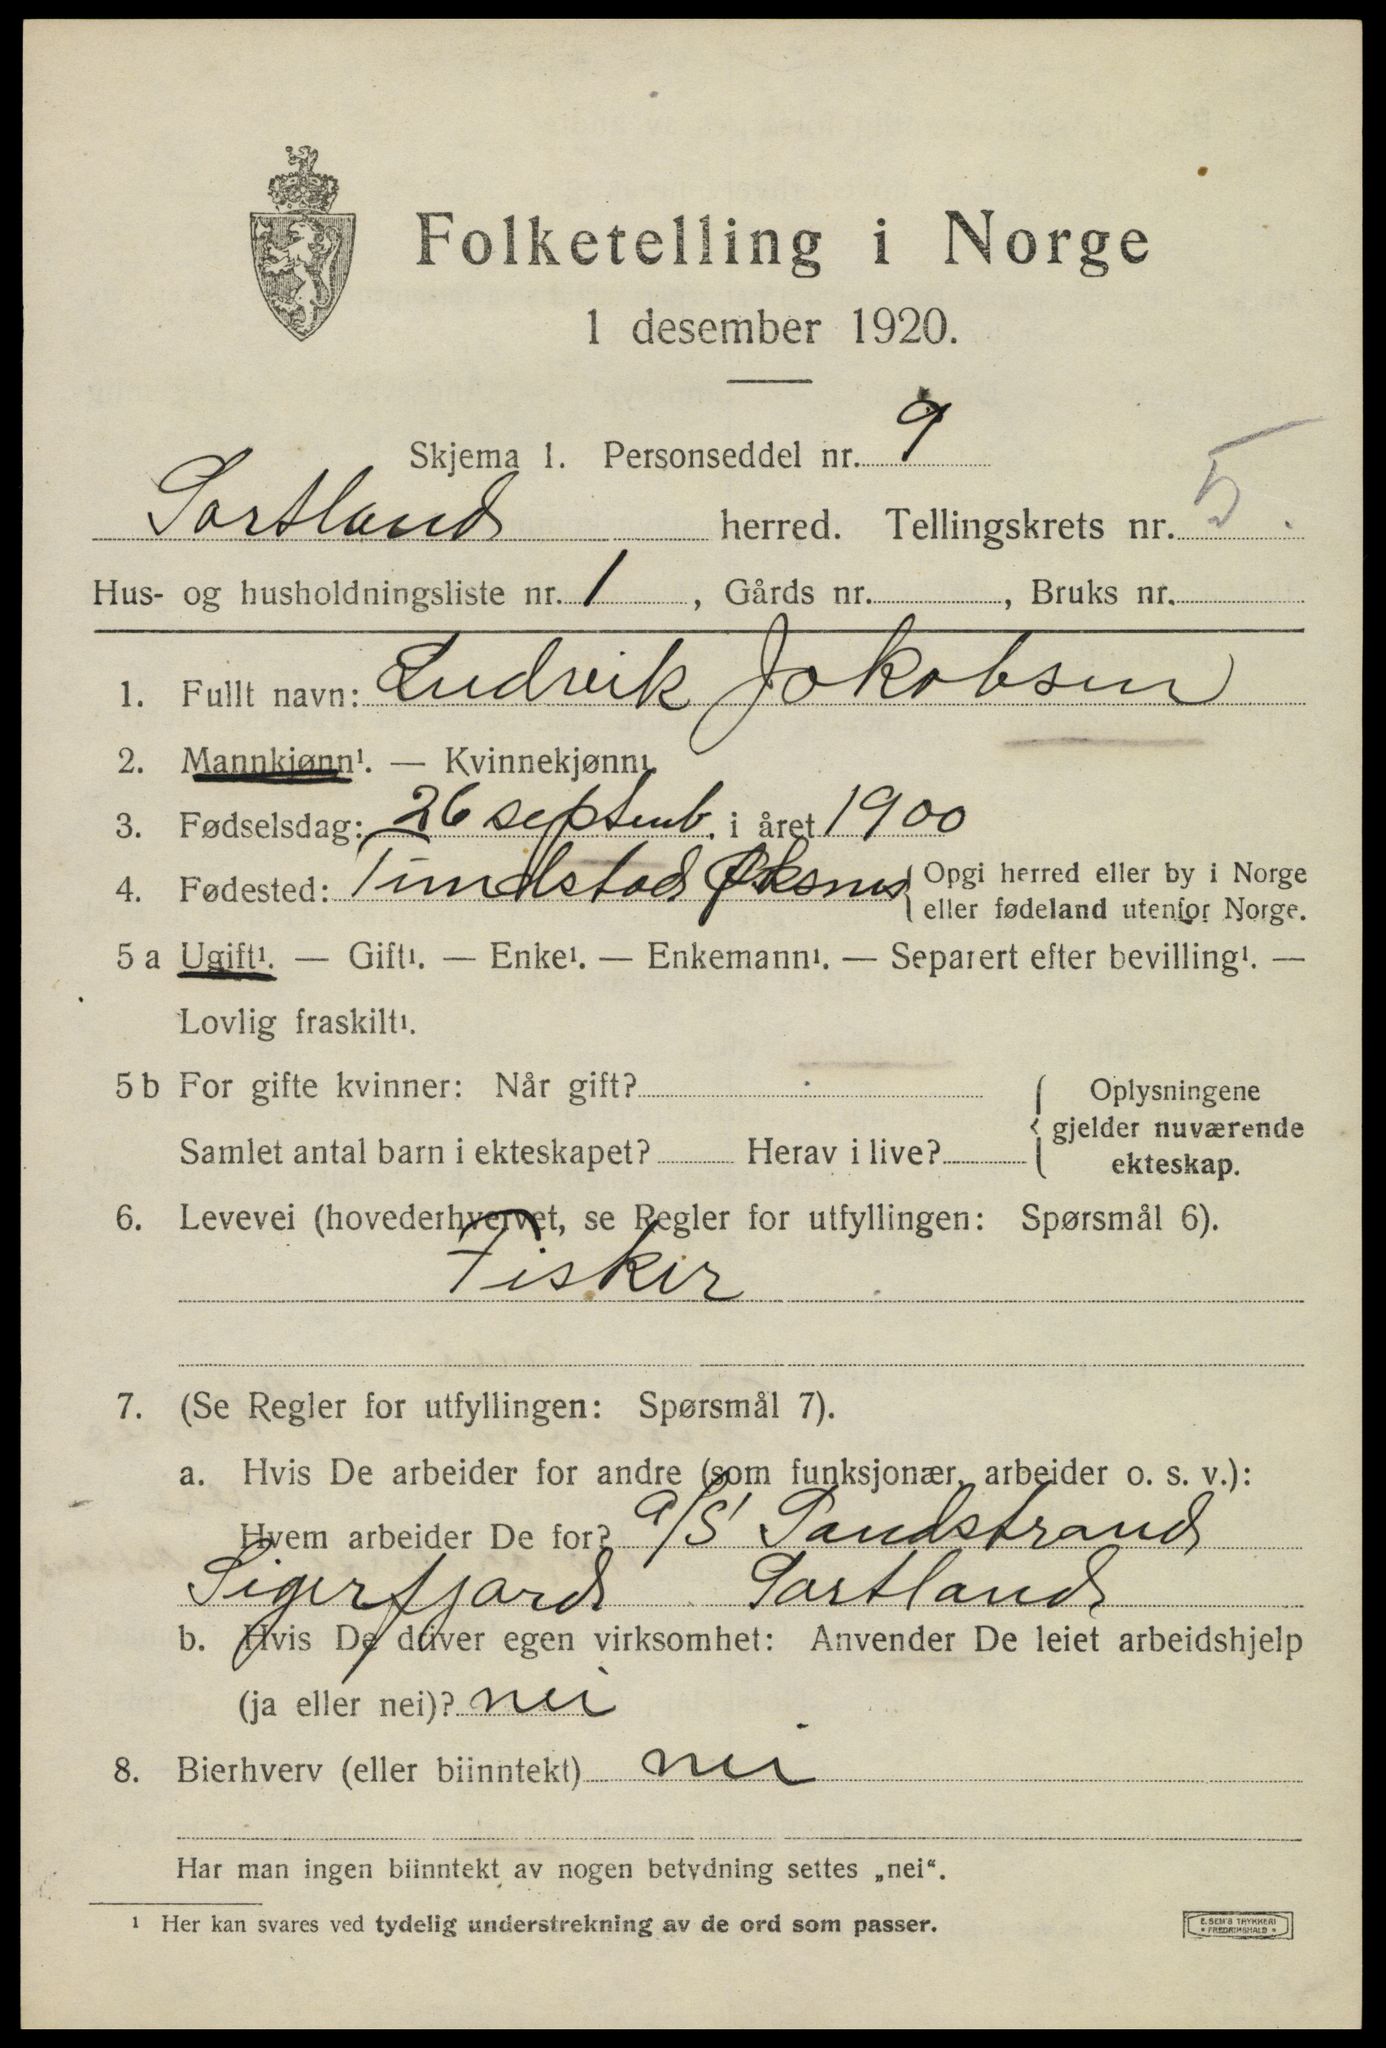 Folketelling i Norge
1 desember 1920.
Skjema 1. Personseddel nr. 9
Sortland herred. Tellingskrets nr. 5.
Hus- og husholdningsliste nr. 1, Gårds nr. , Bruks nr.
1. Fullt navn: Ludvik Jakobsen
2. Mannkjønn¹. — Kvinnekjønn¹.
3. Fødselsdag: 26 septemb. i året 1900
4. Fødested: Tundstad Øksnes { Opgi herred eller by i Norge
eller fødeland utenfor Norge.
5 a Ugift¹. — Gift¹. — Enke¹. — Enkemann¹. — Separert efter bevilling¹. —
Lovlig fraskilt¹.
5 b For gifte kvinner: Når gift? { Oplysningene
gjelder nuværende
Samlet antal barn i ekteskapet? Herav i live?
ekteskap.
6. Levevei (hovederhvervet, se Regler for utfyllingen: Spørsmål 6).
Fisker
7. (Se Regler for utfyllingen: Spørsmål 7).
a. Hvis De arbeider for andre (som funksjonær, arbeider o. s. v.):
Hvem arbeider De for? a/S' Sandstrand
Sigerfjord Sortland
b. Hvis De driver egen virksomhet: Anvender De leiet arbeidshjelp
(ja eller nei)? nei
8. Bierhverv (eller biinntekt) nei
Har man ingen biinntekt av nogen betydning settes „nei“.
¹ Her kan svares ved tydelig understrekning av de ord som passer.
E. SEM'S TRYKKERI
* FREDRIKSHALD *